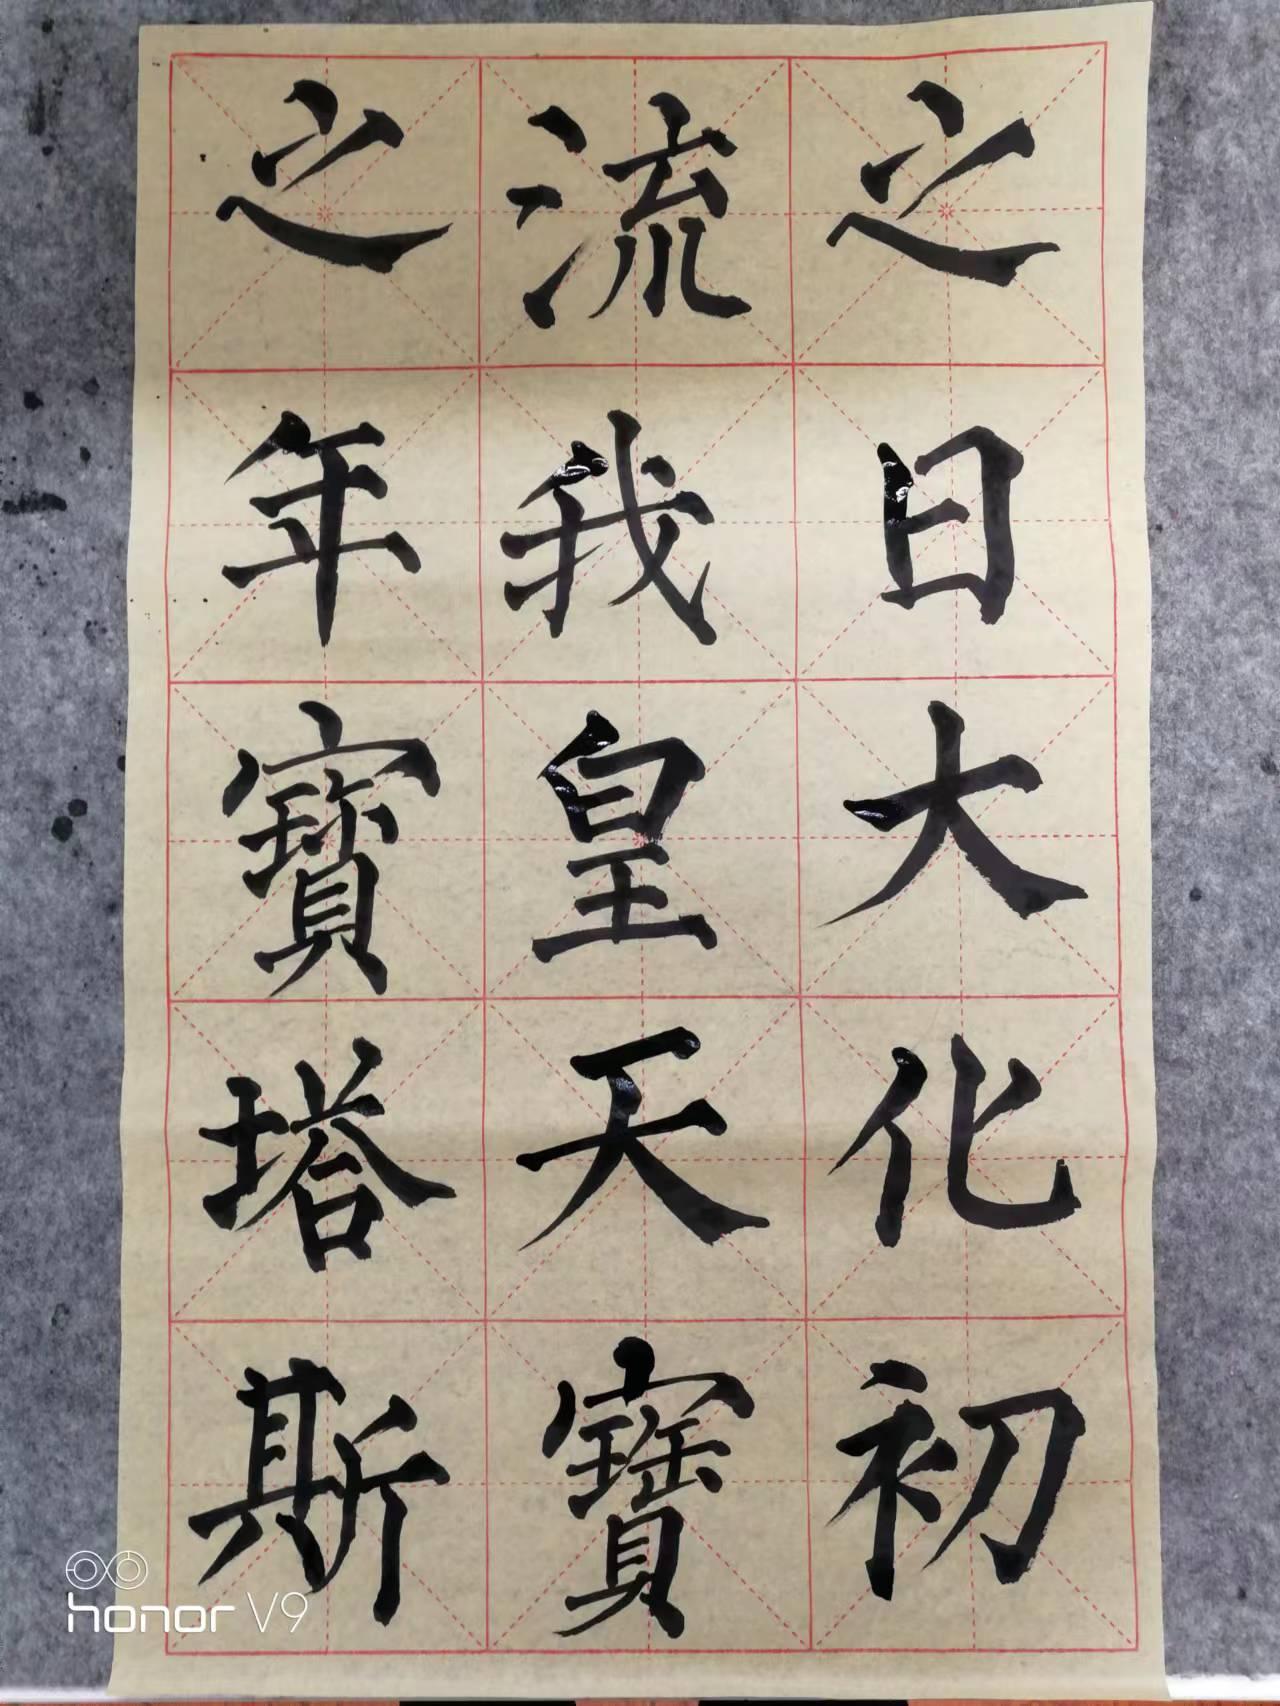 之日大化初
流我皇天寶
之年寶塔斯
honor V9